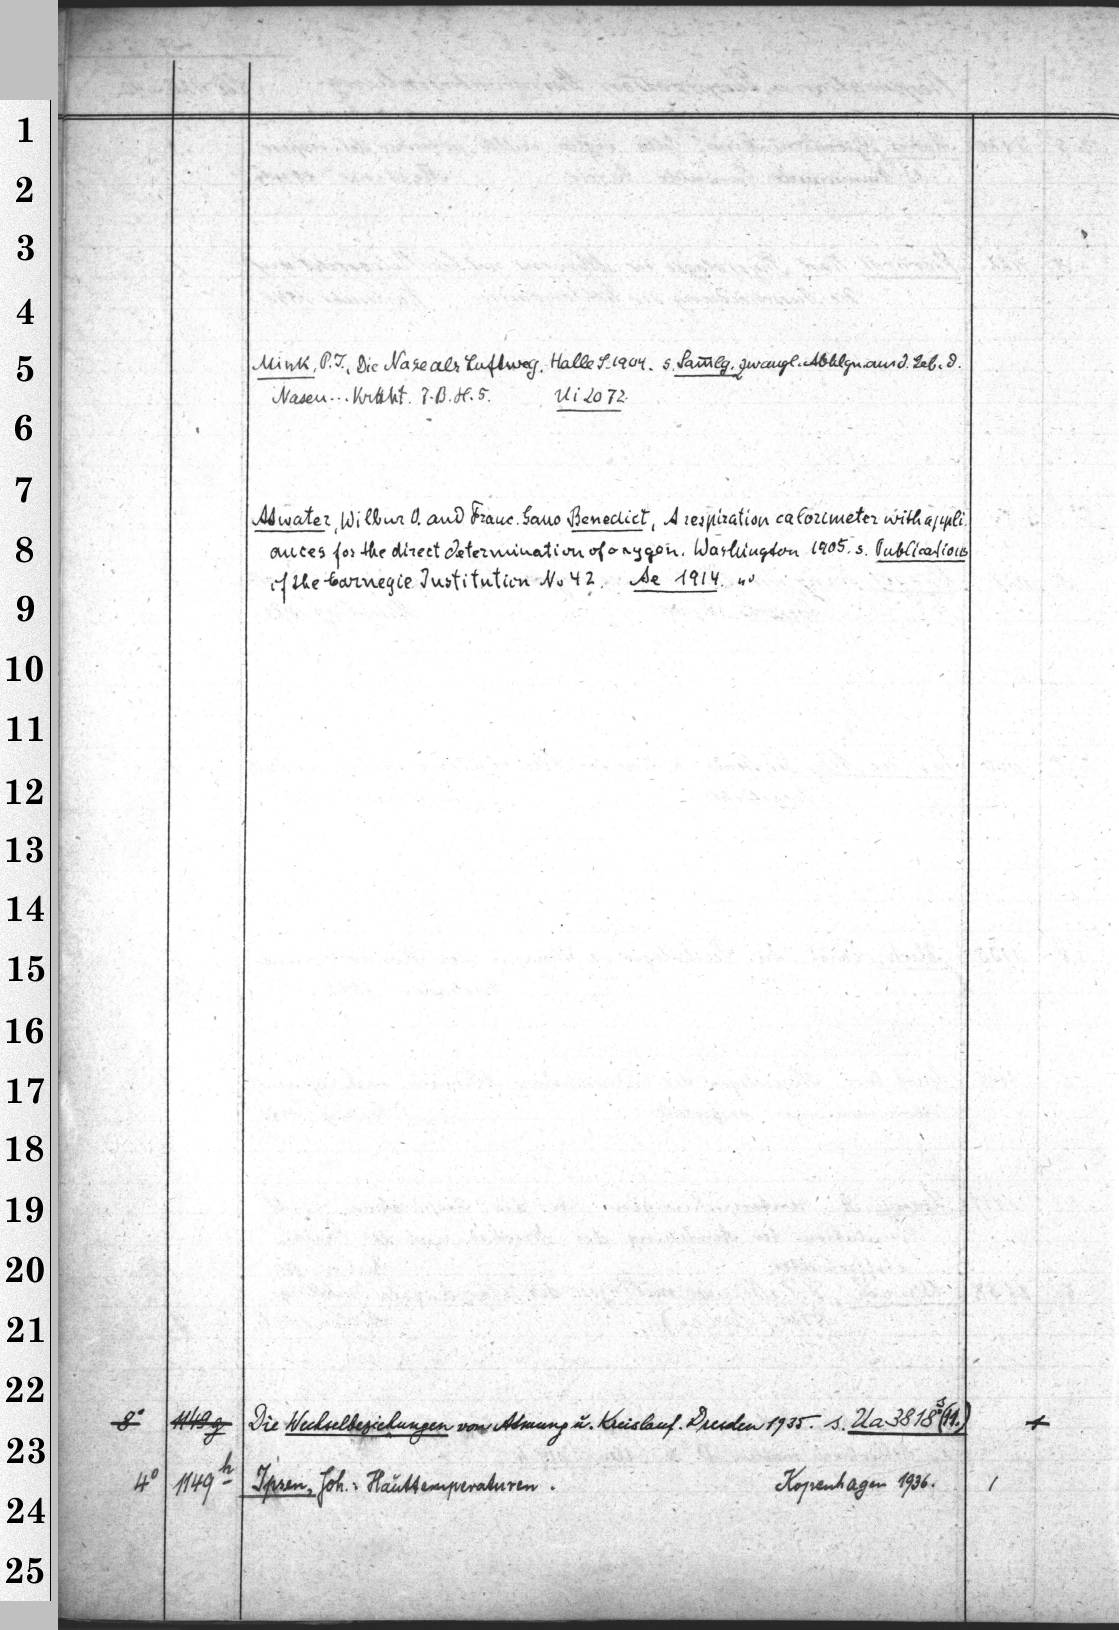 1
2
3
4
5
Mink, P.J., Die Nase als Luftweg. Halle S. 1904. s. Sam̅lg. zwangl. Abhlgn. aus d. Geb. d.
Nasen... Krkht. 7. B. H. 5. Ui 2072.
6
7
Atwater, Wilbur O. and Franc. Gano Benedict, A respiration calorimeter with appli-
8
ances for the direct determination of oxygen. Washington 1905. s. Publications
of the Carnegie Institution No 42. Ae 1914. 4o
9
10
11
12
13
14
15
16
17
18
19
20
21
22
8° 1149g Die Wechselbeziehungen von Atmung u. Kreislauf. Dresden 1935. s. Ua 3818 s (11.) 1
23
4° 1149h Ipsen, Joh.: Hauttemperaturen. Kopenhagen 1936. 1
24
25